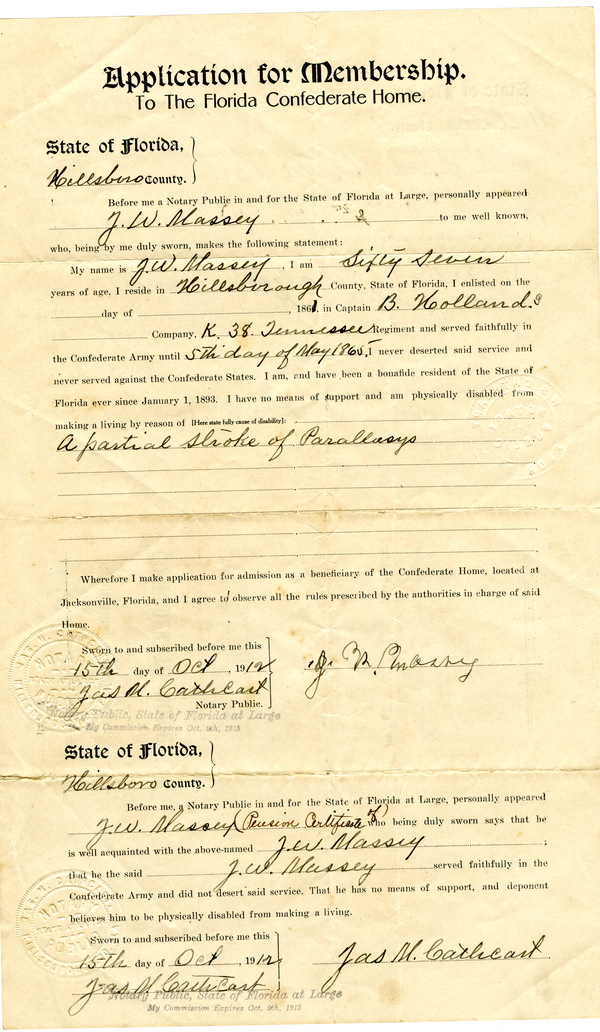 Application for Membership.
To The Florida Confederate Home.
State of Florida,
Hillsboro County.
Before me a Notary Public in and for the State of Florida at Large, personally appeared
J. W. Massey to me well known,
who, being by me duly sworn, makes the following statement:
My name is J. W. Massey, I am Sixty Seven
years of age, I reside in Hillsborough County, State of Florida, I enlisted on the
day of , 1861, in Captain B. Holland.s
Company, K. 38. Tennessee Regiment and served faithfully in
the Confederate Army until 5th day of May 1865, I never deserted said service and
never served against the Confederate States. I am, and have been a bonafide resident of the State of
Florida ever since January 1, 1893. I have no means of support and am physically disabled from
making a living by reason of [Here state fully cause of disability]:
A partial stroke of Parallasys
Wherefore I make application for admission as a beneficiary of the Confederate Home, located at
Jacksonville, Florida, and I agree to observe all the rules prescribed by the authorities in charge of said
Home.
Sworn to and subscribed before me this
15th day of Oct, 1912
J. W. Massey
Jas M. Cathcart
Notary Public.
Notary Public, State of Florida at Large
My Commission Expires Oct. 9th, 1915
State of Florida,
Hillsboro County.
Before me, a Notary Public in and for the State of Florida at Large, personally appeared
J. W. Massey (Pension Certificate of) who being duly sworn says that he
is well acquainted with the above-named J. W. Massey ;
that he the said J. W. Massey served faithfully in the
Confederate Army and did not desert said service. That he has no means of support, and deponent
believes him to be physically disabled from making a living.
Sworn to and subscribed before me this
15th day of Oct, 1912
Jas M. Cathcart
Jas M. Cathcart
Notary Public, State of Florida at Large
My Commission Expires Oct. 9th, 1915